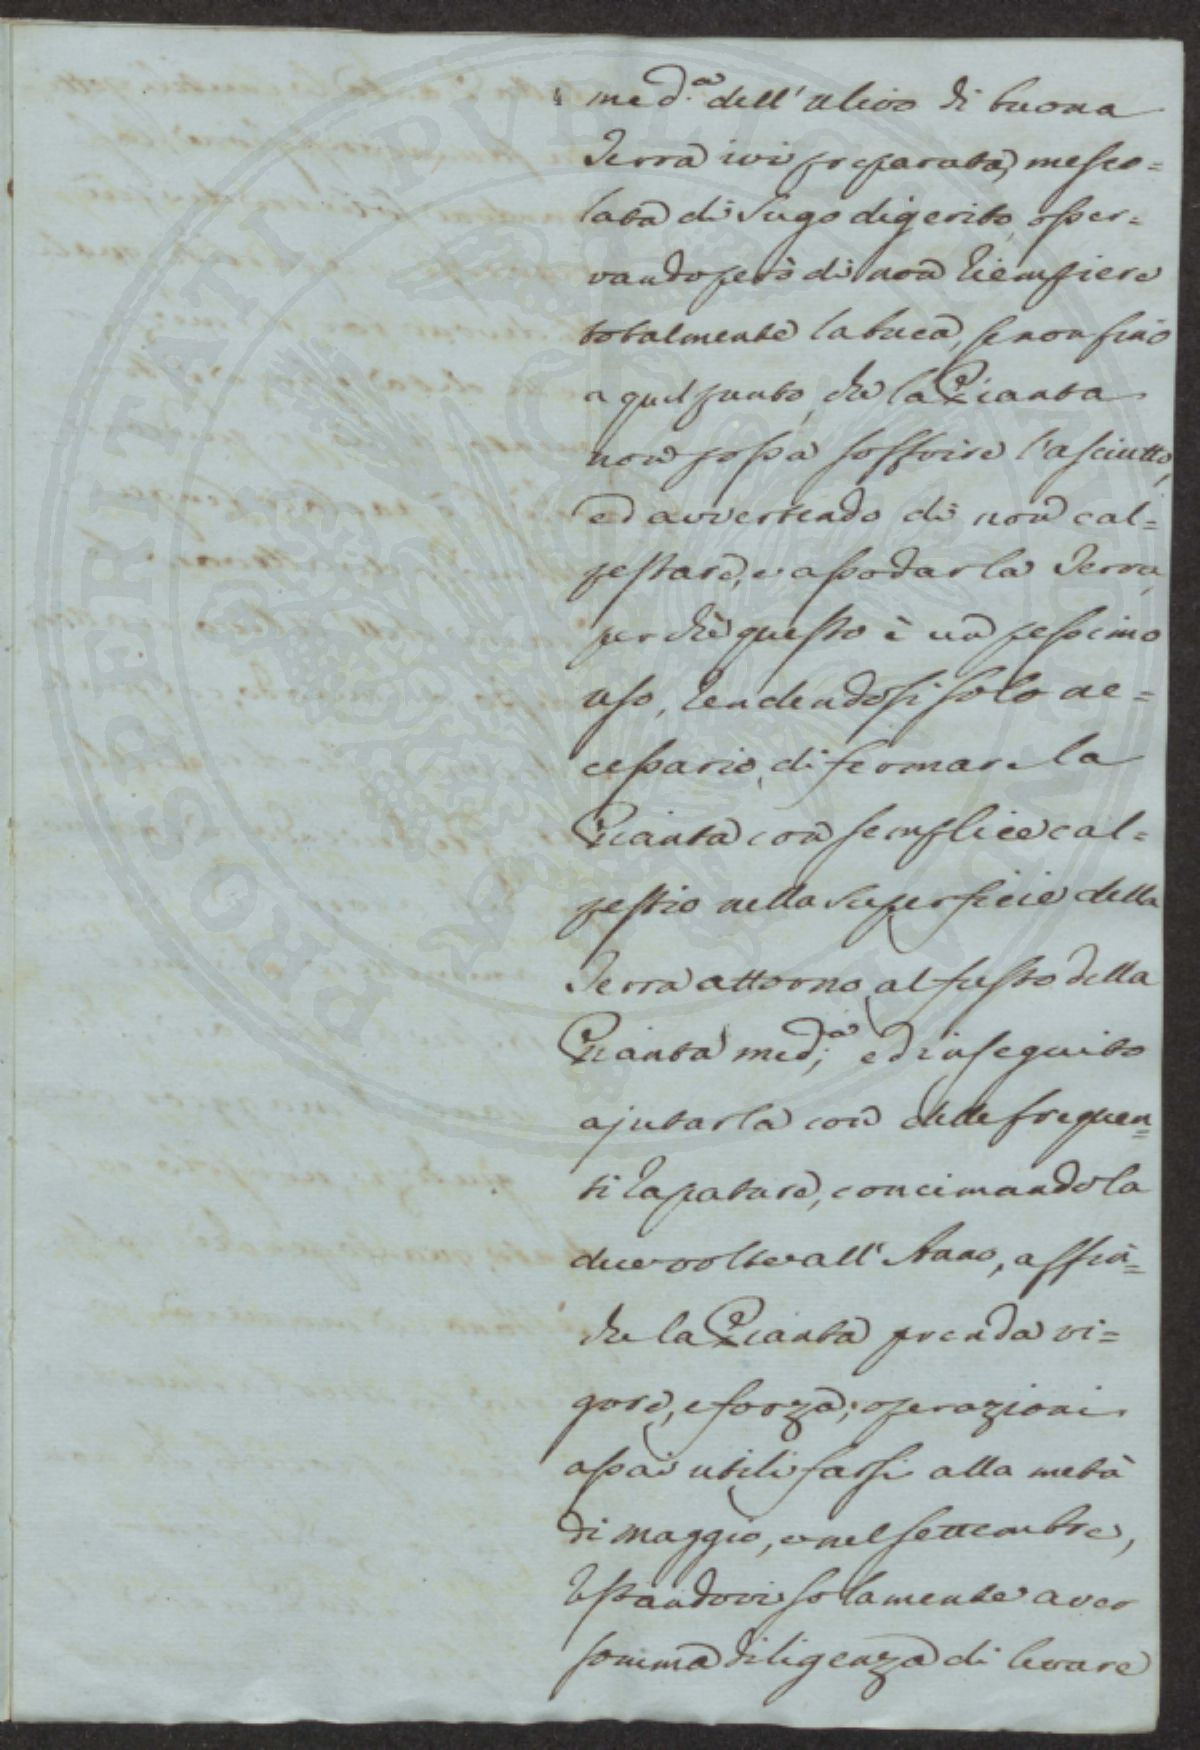 med.a dell' ulivo di buona
Terra ivi preparata, mesco=
lata di sugo digerito, osser=
vando però di non riempiere
totalmente la buca, se non fino
a quel punto, che la Pianta
non possa soffrire l'asciutto,
ed avvertendo di non cal=
pestare, e assodar la Terra,
perchè questo è un pessimo
uso, rendendosi solo ne=
cessario, di fermare la
Pianta con semplice cal=
pestio nella superficie della
Terra attorno al fusto della
Pianta med.a, ed in seguito
ajutarla con delle frequen=
ti zapature, concimandola
due volte all' Anno, affin=
che la Pianta prenda vi=
gore, e forza; operazioni
assai utili farsi alla metà
di maggio, e nel settembre,
restandovi solamente aver
somma diligenza di levare
PROSPERITATI PVBLICAE